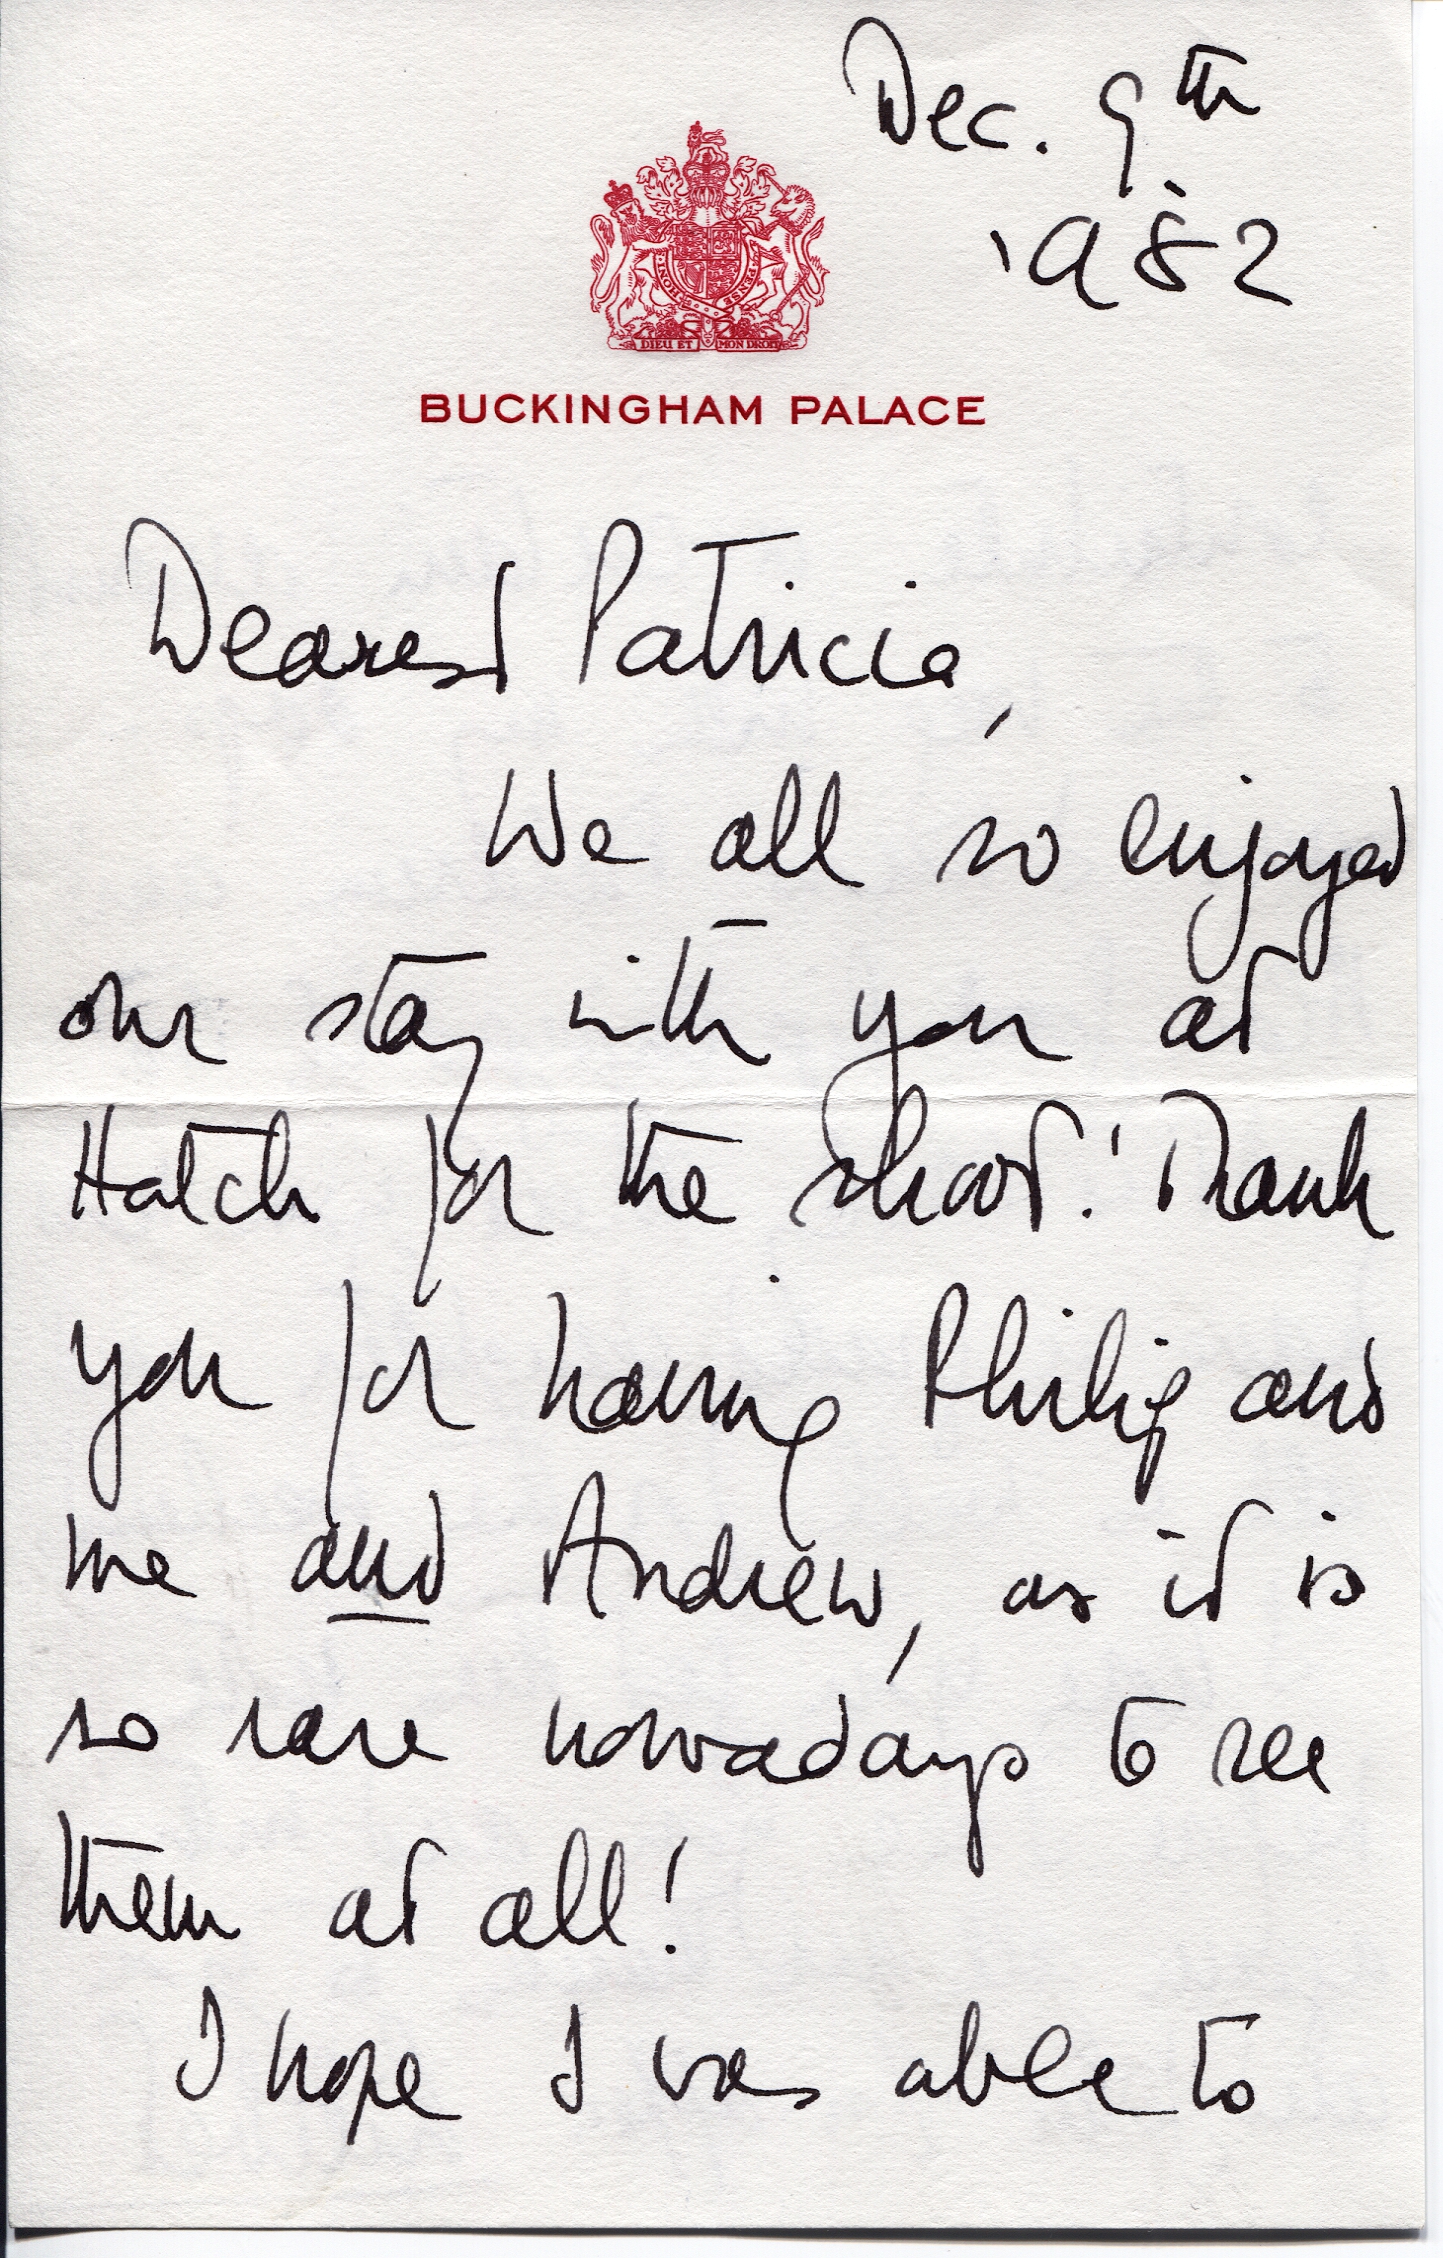 Dec. 9th
1982
HONI PENSE
DIEU ET MON DROIT
BUCKINGHAM PALACE
Dearest Patricia,
We all so enjoyed
our stay with you at
Hatch for the shoot! Thank
you for having Philip and
me and Andrew, as it is
so rare nowadays to see
them at all!
I hope I was able to